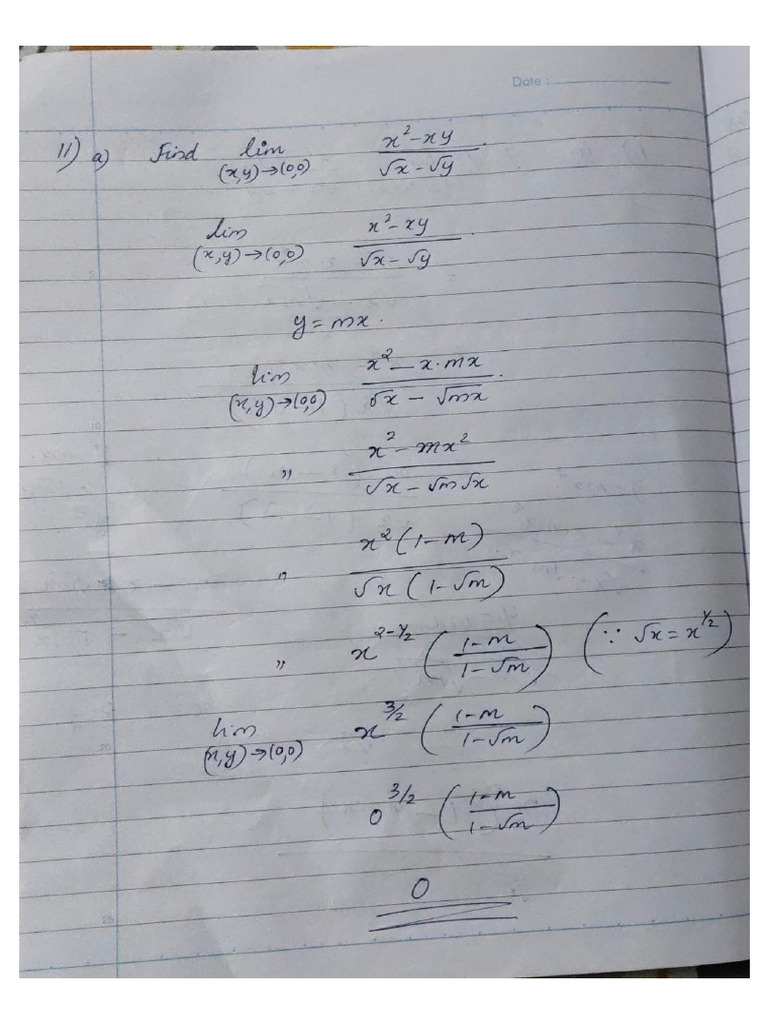 Date :
11) a) Find lim (x,y)→(0,0) x²-xy / √x-√y.
lim (x,y)→(0,0) x²-xy / √x-√y
y = mx.
lim (x,y)→(0,0) x²-x·mx / √x-√mx.
" x²-mx² / √x-√m√x
" x²(1-m) / √x(1-√m)
" x^2-1/2 (1-m / 1-√m) (∵ √x = x^1/2)
lim (x,y)→(0,0) x^3/2 (1-m / 1-√m)
0^3/2 (1-m / 1-√m)
0